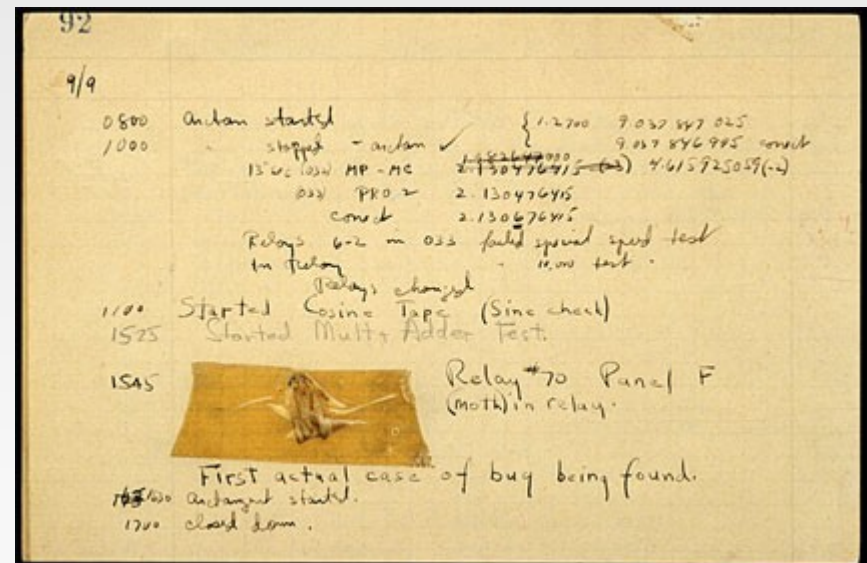 92
9/9
0800 Antan started { 1.2700 9.037 847 025
1000 " stopped - antan ✓ 9.037 846 995 correct
13"uc (032) MP - MC 2.130476415 (-3) 4.615925059(-2)
(033) PRO 2 2.130476415
correct 2.130676415
Relays 6-2 in 033 failed special speed test
In Relay " 10,000 test .
Relays changed
1100 Started Cosine Tape (Sine check)
1525 Started Mult+ Adder Test.
1545 Relay #70 Panel F
(moth) in relay.
First actual case of bug being found.
1630 antangent started.
1700 closed down.